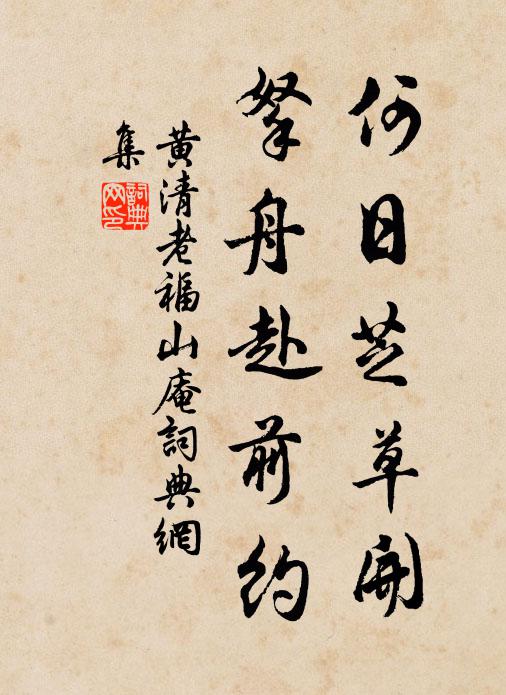 何日芝草開
拏舟赴前約
黃清老福山庵詞典網
集
詞典
网印